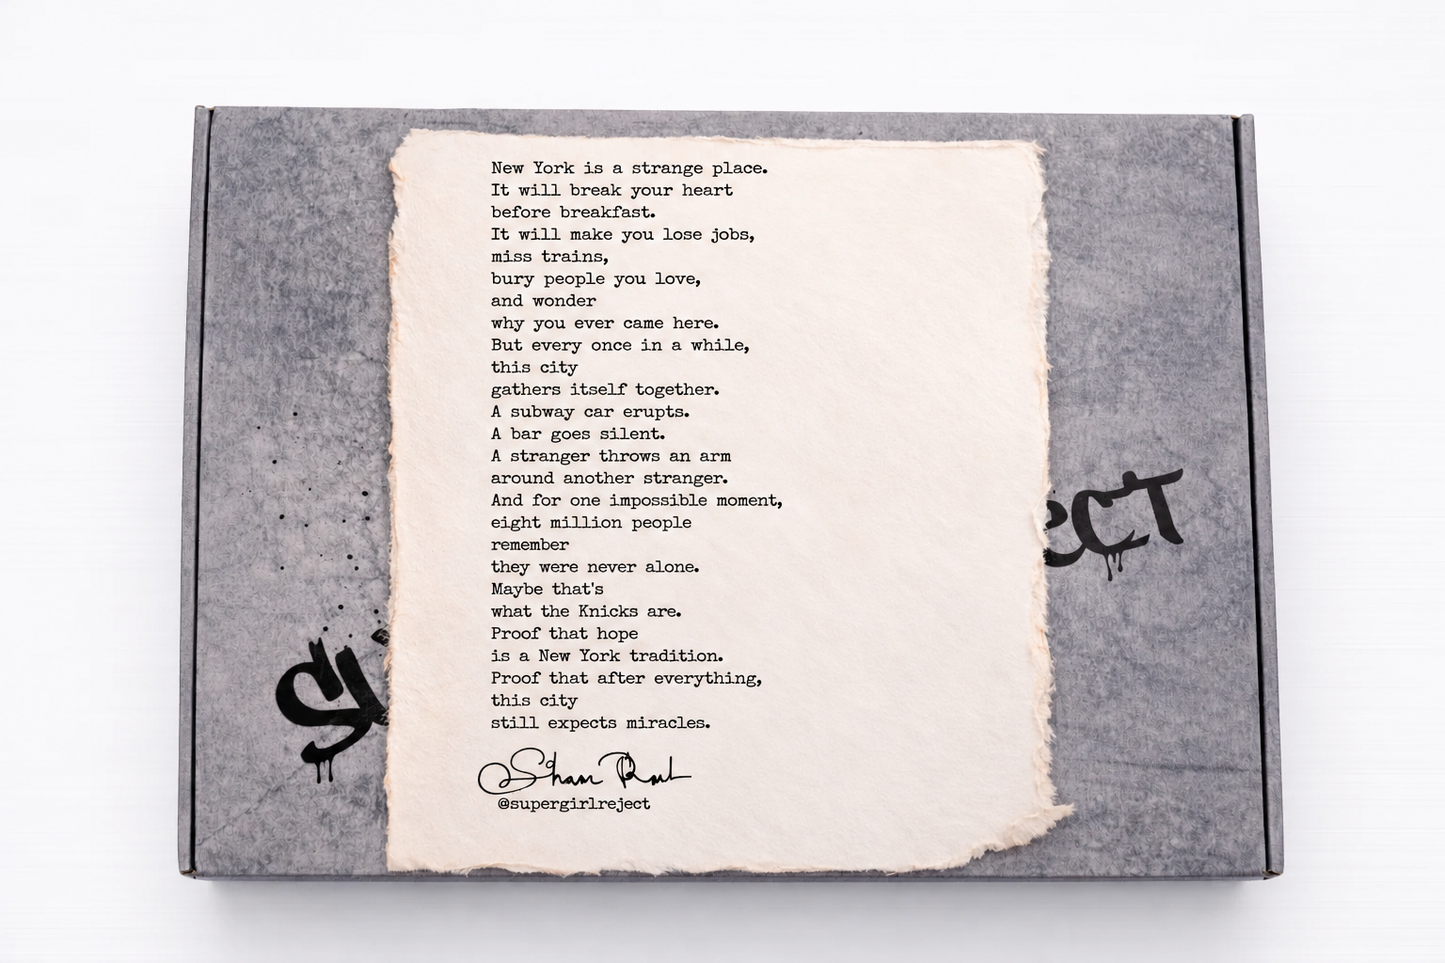 New York is a strange place.
It will break your heart
before breakfast.
It will make you lose jobs,
miss trains,
bury people you love,
and wonder
why you ever came here.
But every once in a while,
this city
gathers itself together.
A subway car erupts.
A bar goes silent.
A stranger throws an arm
around another stranger.
And for one impossible moment,
eight million people
remember
they were never alone.
Maybe that's
what the Knicks are.
Proof that hope
is a New York tradition.
Proof that after everything,
this city
still expects miracles.
@supergirlreject